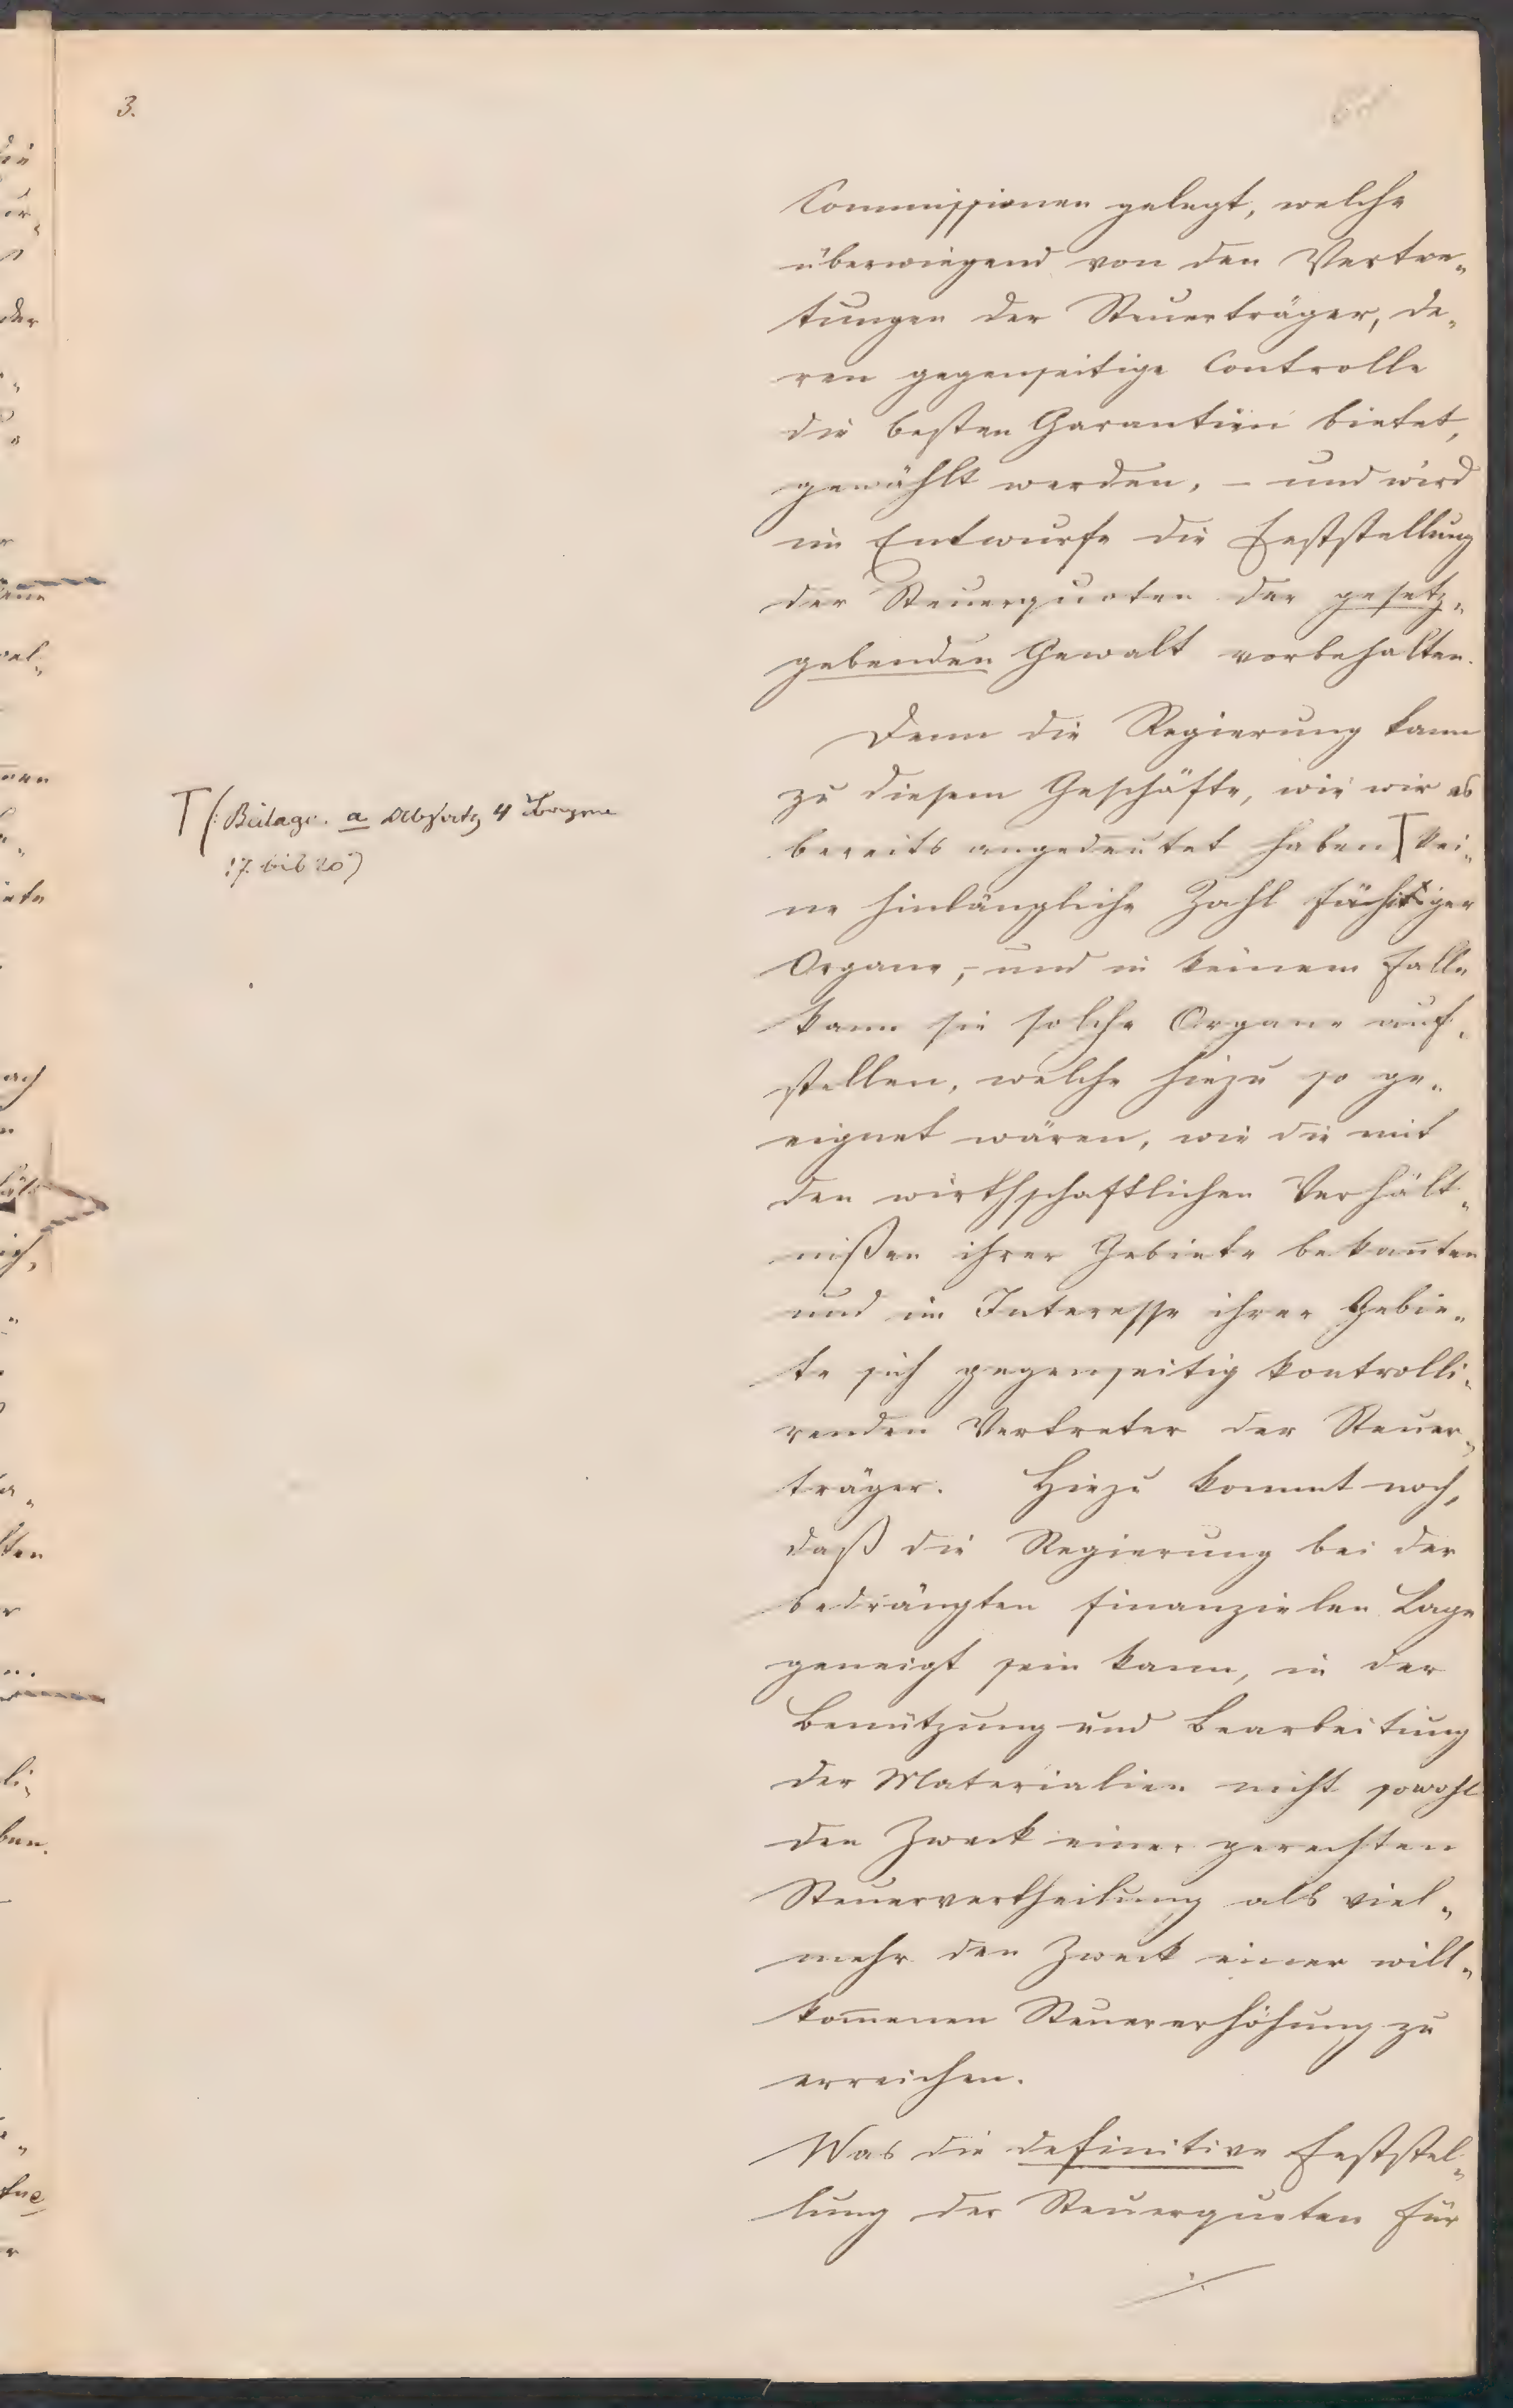 3.
Commissionen gelegt, welche
überwiegend von den Vertre„
tungen der Steuerträger, de„
ren gegenseitige Controlle
die besten Garantien bietet,
gewählt werden, – und wird
im Entwurfe die Feststellung
der Steuerquoten der gesetz„
gebenden Gewalt vorbehalten.
Denn die Regierung kann
zu diesem Geschäfte, wie wir es
bereits angedeutet haben T kei„
T (: Beilage. a Absatz 4
17. bis 20)
ne hinlängliche Zahl fähiger
Organe, – und in keinem Falle
kann sie solche Organe auf„
stellen, welche hiezu so ge„
eignet wären, wie die mit
den wirthschaftlichen Verhält„
nißen ihrer Gebiete bekan̄ten
und im Interesse ihrer Gebie„
te sich gegenseitig kontrolli„
renden Vertreter der Steuer„
träger. Hiezu kommt noch,
daß die Regierung bei der
bedrängten finanzielen Lage
geneigt sein kann, in der
Benützung und Bearbeitung
der Materialien nicht sowohl
den Zweck einer gerechten
Steuervertheilung als viel„
mehr den Zweck einer will„
kom̄enen Steuererhöhung zu
erreichen.
Was die definitive Feststel„
lung der Steuerquoten für
./.